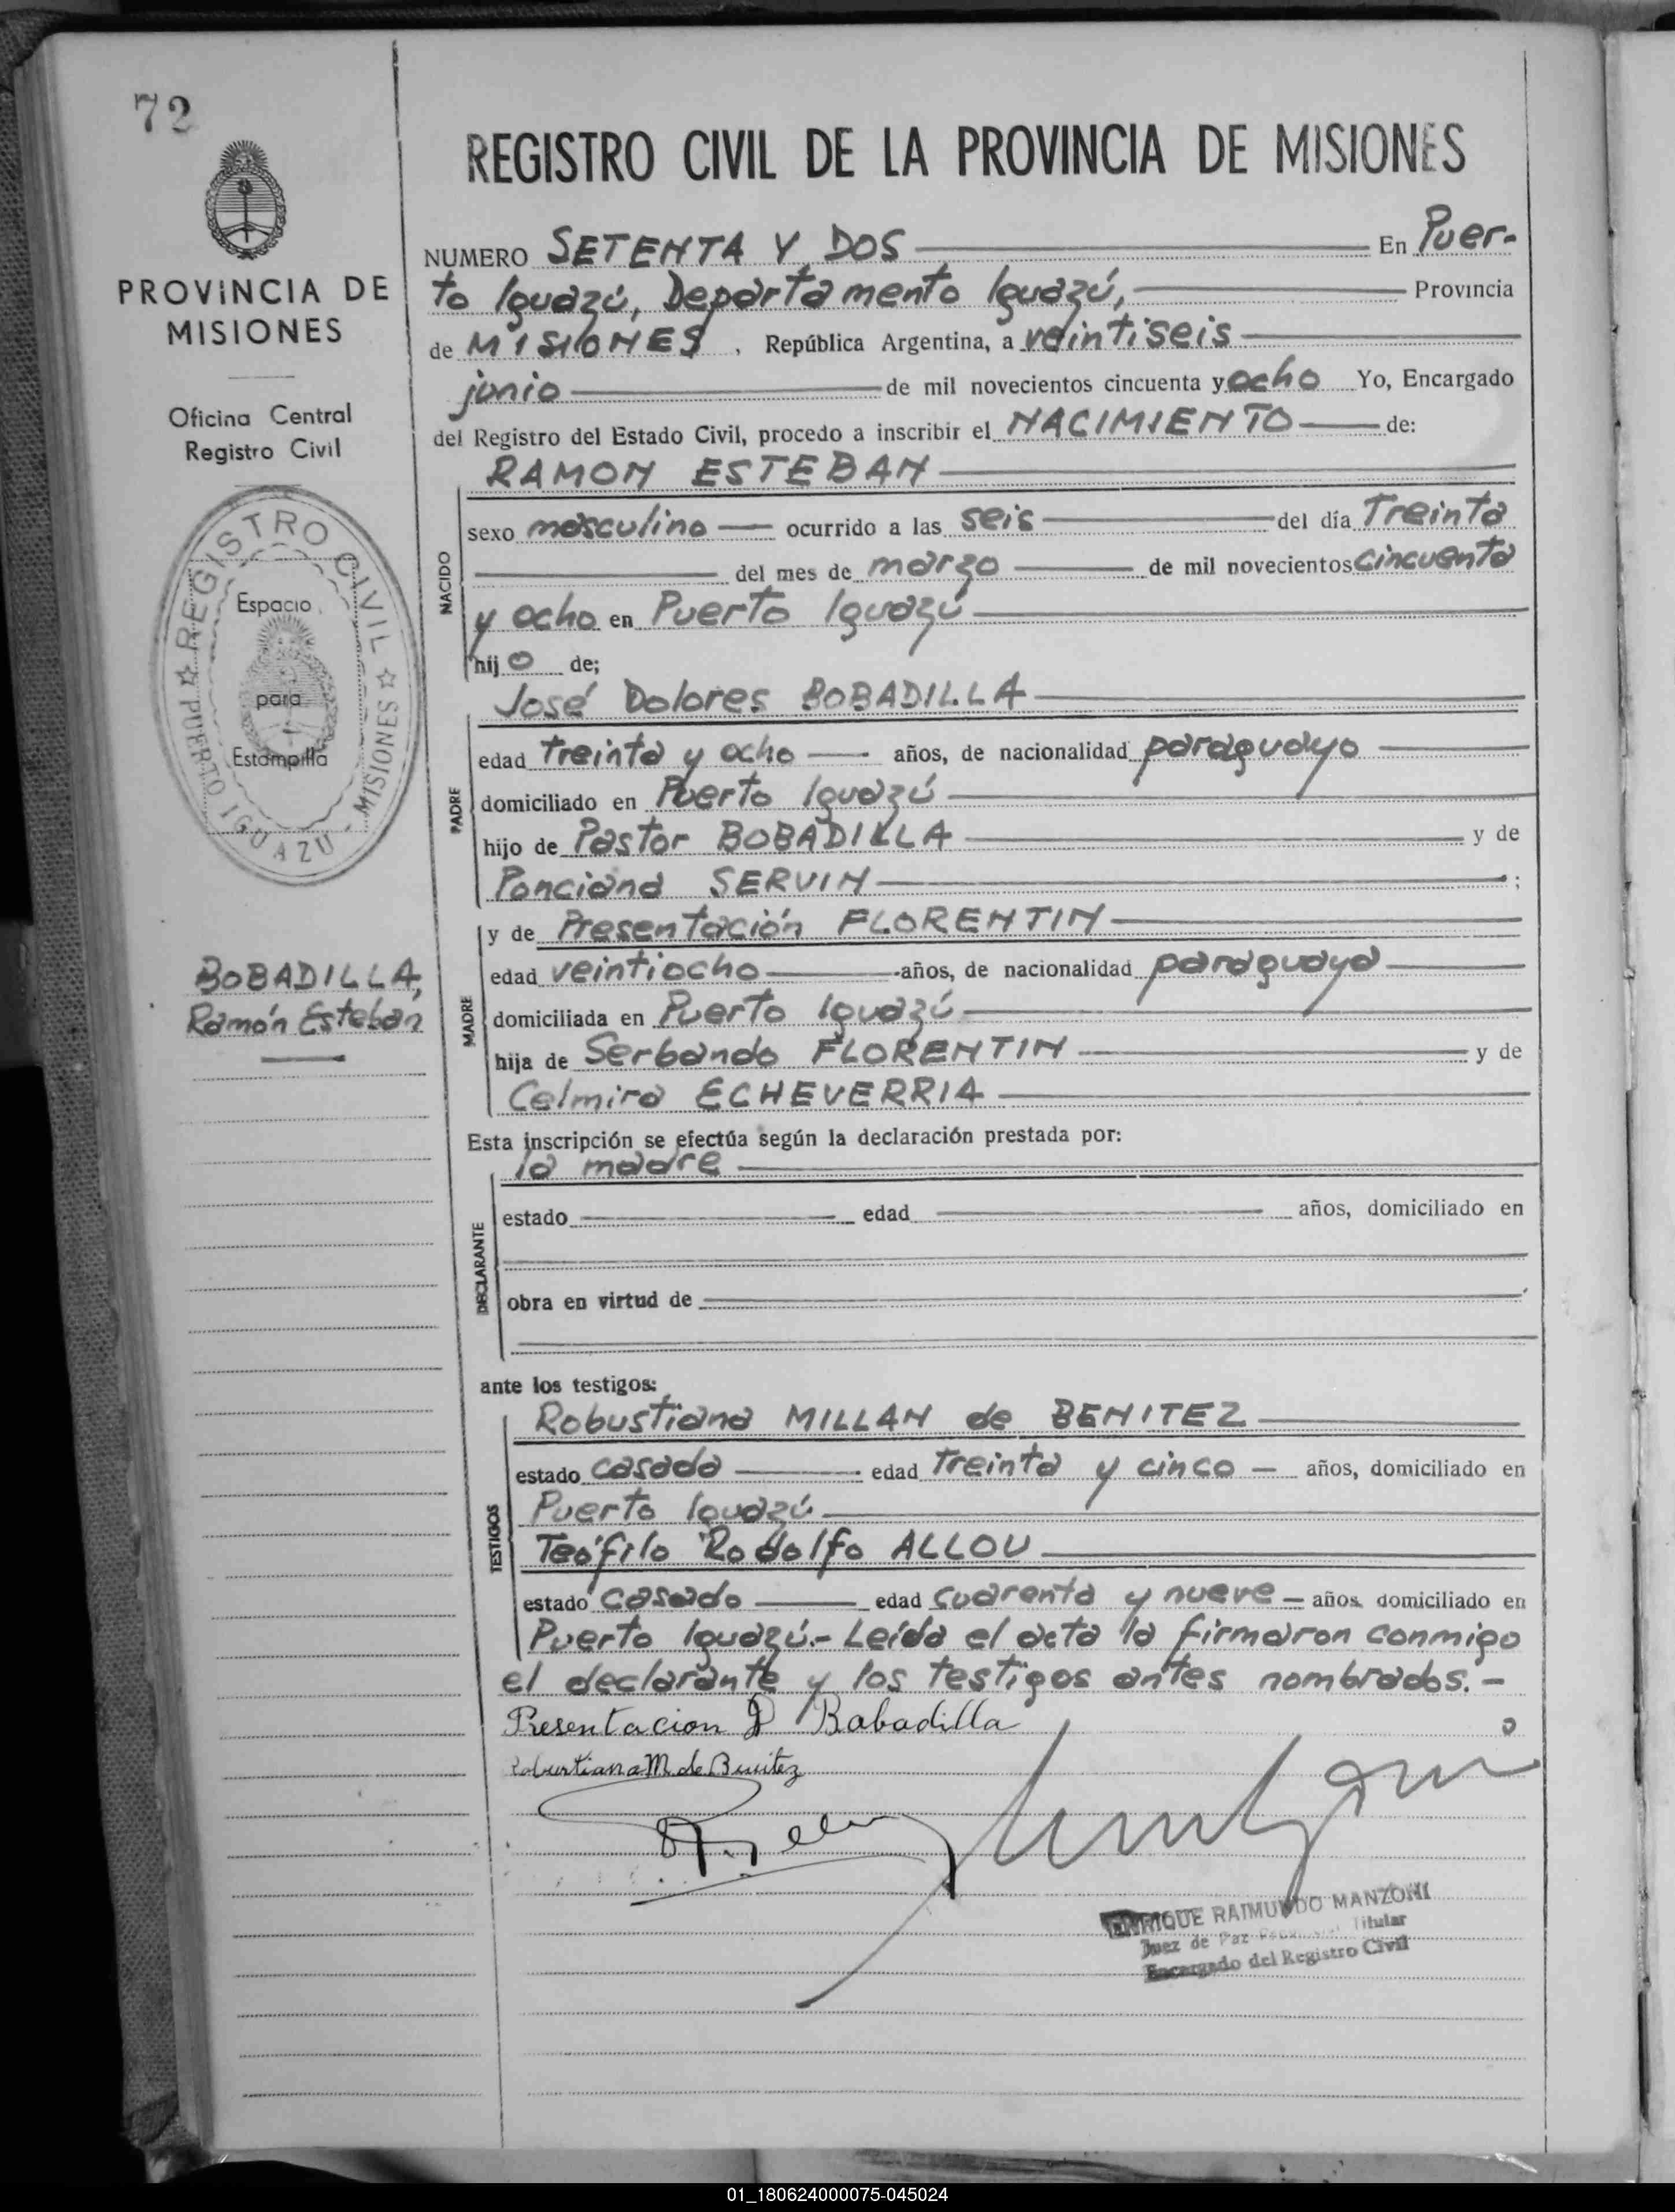 72
REGISTRO CIVIL DE LA PROVINCIA DE MISIONES
PROVINCIA DE
MISIONES
Oficina Central
Registro Civil
REGISTRO CIVIL
PUERTO IGUAZU - MISIONES
Espacio
para
Estampilla
BOBADILLA,
Ramón Esteban
NUMERO SETENTA Y DOS En Puer-
to Iguazú, Departamento Iguazú, Provincia
de MISIONES, República Argentina, a veintiseis
junio de mil novecientos cincuenta y ocho Yo, Encargado
del Registro del Estado Civil, procedo a inscribir el NACIMIENTO de:
RAMON ESTEBAN
NACIDO
sexo masculino ocurrido a las seis del día Treinta
del mes de marzo de mil novecientos cincuenta
y ocho en Puerto Iguazú
hijo de;
José Dolores BOBADILLA
PADRE
edad treinta y ocho años, de nacionalidad paraguayo
domiciliado en Puerto Iguazú
hijo de Pastor BOBADILLA y de
Ponciana SERVIN ;
MADRE
y de Presentación FLORENTIN
edad veintiocho años, de nacionalidad paraguaya
domiciliada en Puerto Iguazú
hija de Serbando FLORENTIN y de
Celmira ECHEVERRIA
Esta inscripción se efectúa según la declaración prestada por:
la madre
DECLARANTE
estado edad años, domiciliado en
obra en virtud de
ante los testigos:
TESTIGOS
Robustiana MILLAN de BENITEZ
estado casada edad Treinta y cinco años, domiciliado en
Puerto Iguazú
Teófilo Rodolfo ALLOU
estado casado edad cuarenta y nueve años domiciliado en
Puerto Iguazú.- Leída el acta la firmaron conmigo
el declarante y los testigos antes nombrados.-
Presentacion Bobadilla
Robustiana M. de Benitez
ENRIQUE RAIMUNDO MANZONI
Juez de Paz Titular
Encargado del Registro Civil
01_180624000075-045024